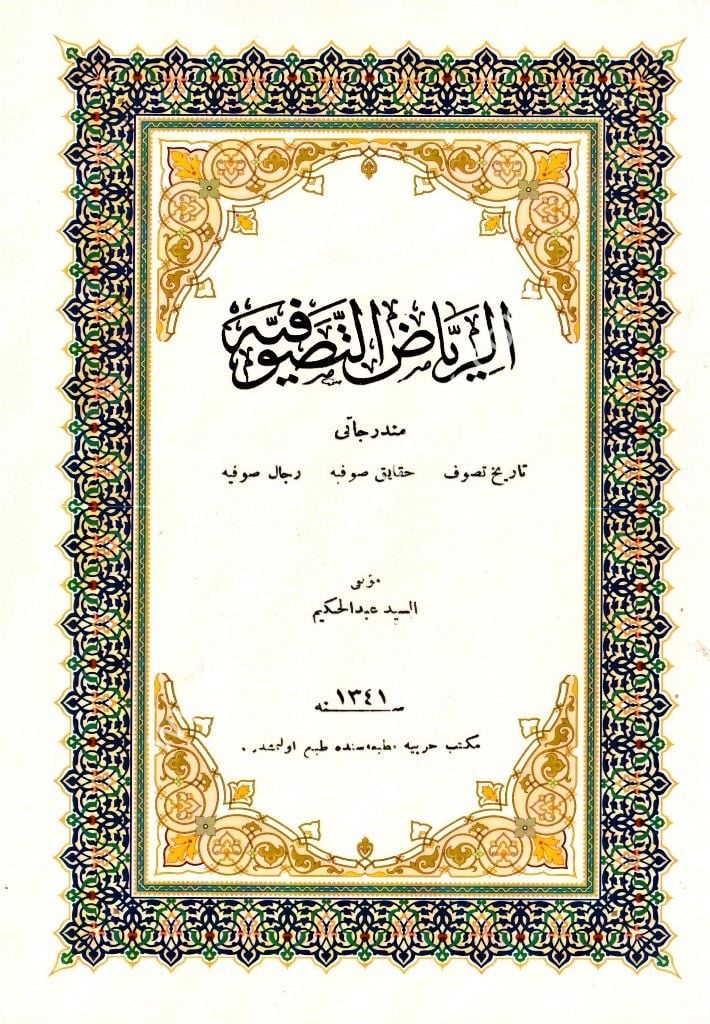 الرياض التّصوّفيّه
مندرجاتى
تاريخ تصوف حقايق صوفيه رجال صوفيه
السيد عبدالحكيم
سنه ١٣٤١
مكتب حربيه مطبعه‌سنده طبع اولنمشدر .